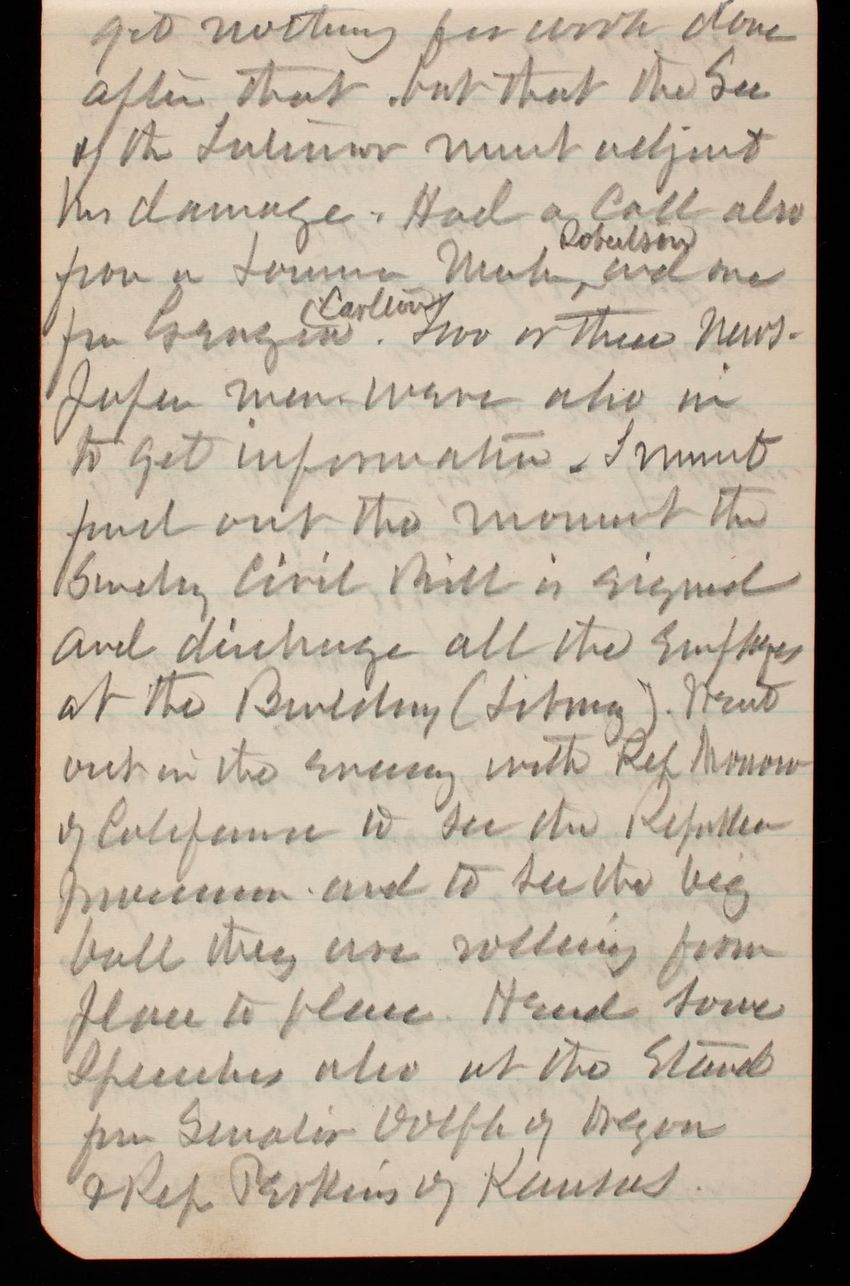 get nothing for work done
after that. but that the Sec
of the Interior must adjust
his damage. Had a Call also
Robertson
from a Louisiana and one
(Carlton)
from Georgia. Two or three News-
paper men were also in
to get information. I must
find out the moment the
Sundry Civil Bill is signed
and discharge all the Employes
at the Building (Library). Went
out in the evening with Rep Morrow
of California to see the Republican
procession and to see the big
ball they are rolling from
place to place. Heard some
Speeches also at the Stand
from Senator Dolph of Oregon
& Rep Perkins of Kansas.